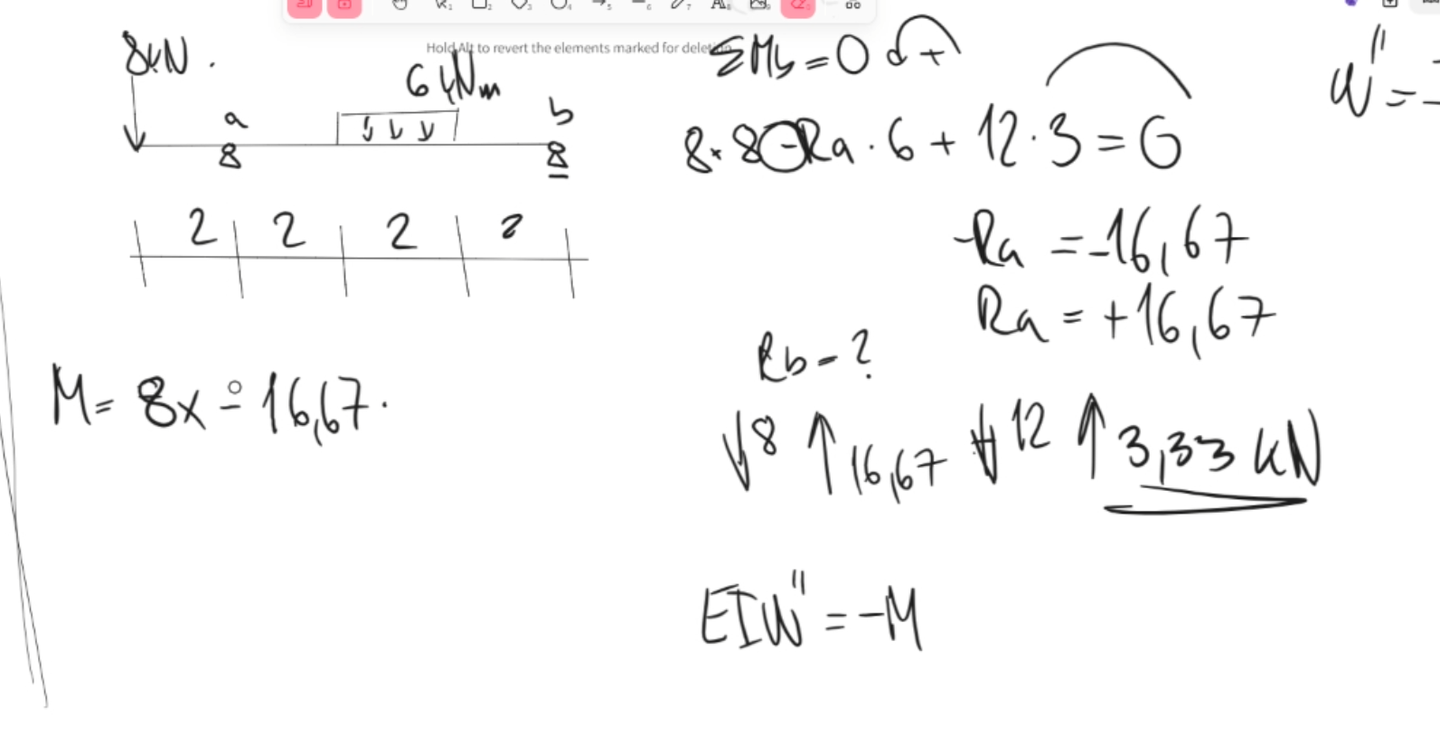 Hold Alt to revert the elements marked for deletion
8kN.
6 kNm
a
b
8
8
2 2 2 2
M= 8x - 16,67.
ΣMb=0
+
8.8-Ra.6+12.3=0
-Ra=-16,67
Ra=+16,67
Rb-?
↓8 ↑16,67 ↓12 ↑3,33 kN
EIW"=-M
W"=-